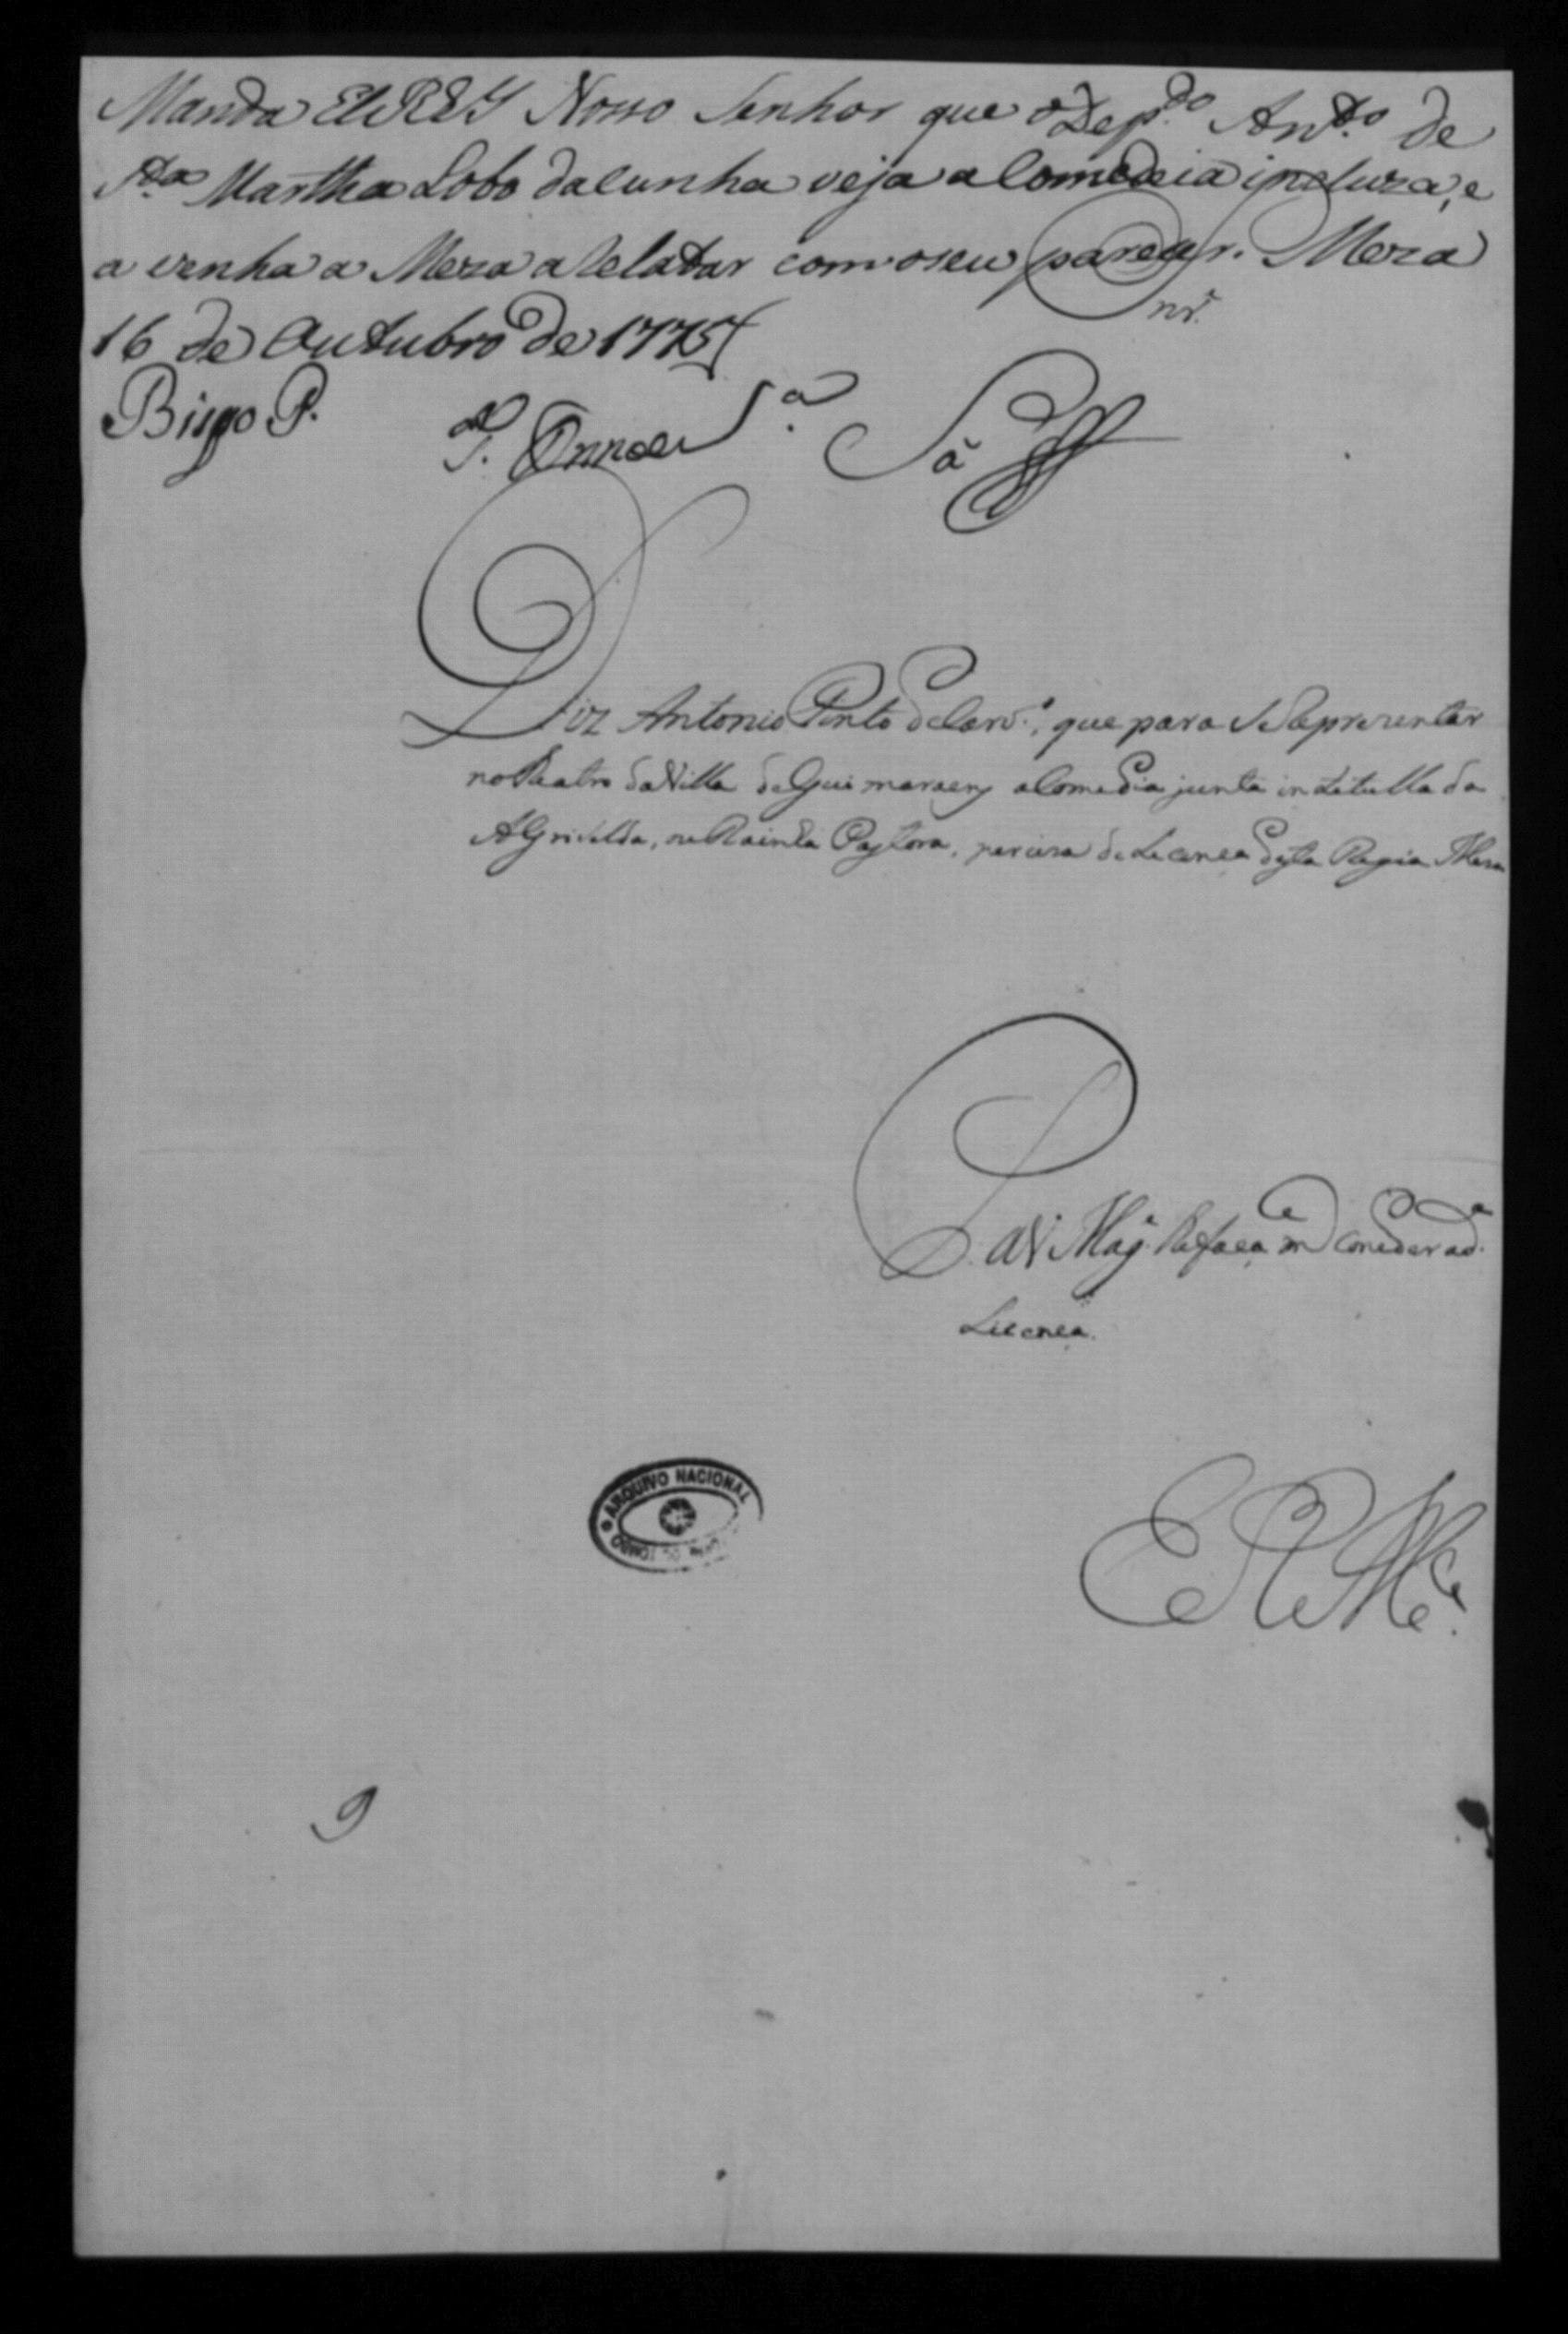 Manda ElREY Nosso Senhor que o Dep.do Ant.o de
S.ta Martha Lobo dacunha veja a Comedeia incluza, e
a venha a Meza a Relatar com o seu parecer. Meza
16 de Outubro de 1775
Snr.
Bispo P.
S.a
Sá
Diz Antonio Pinto deCarv.o, que para seReprezentar
noTeatro daVilla deGuimaraens aComedia junta intitullada
AGriselda, ou Rainha Pastora, perciza deLicença desta Regia Meza
P. aV. Mag.e lhefaça m.ce conceder ad.a
Licença.
ERM.ce
ARQUIVO NACIONAL
TOMBO
9